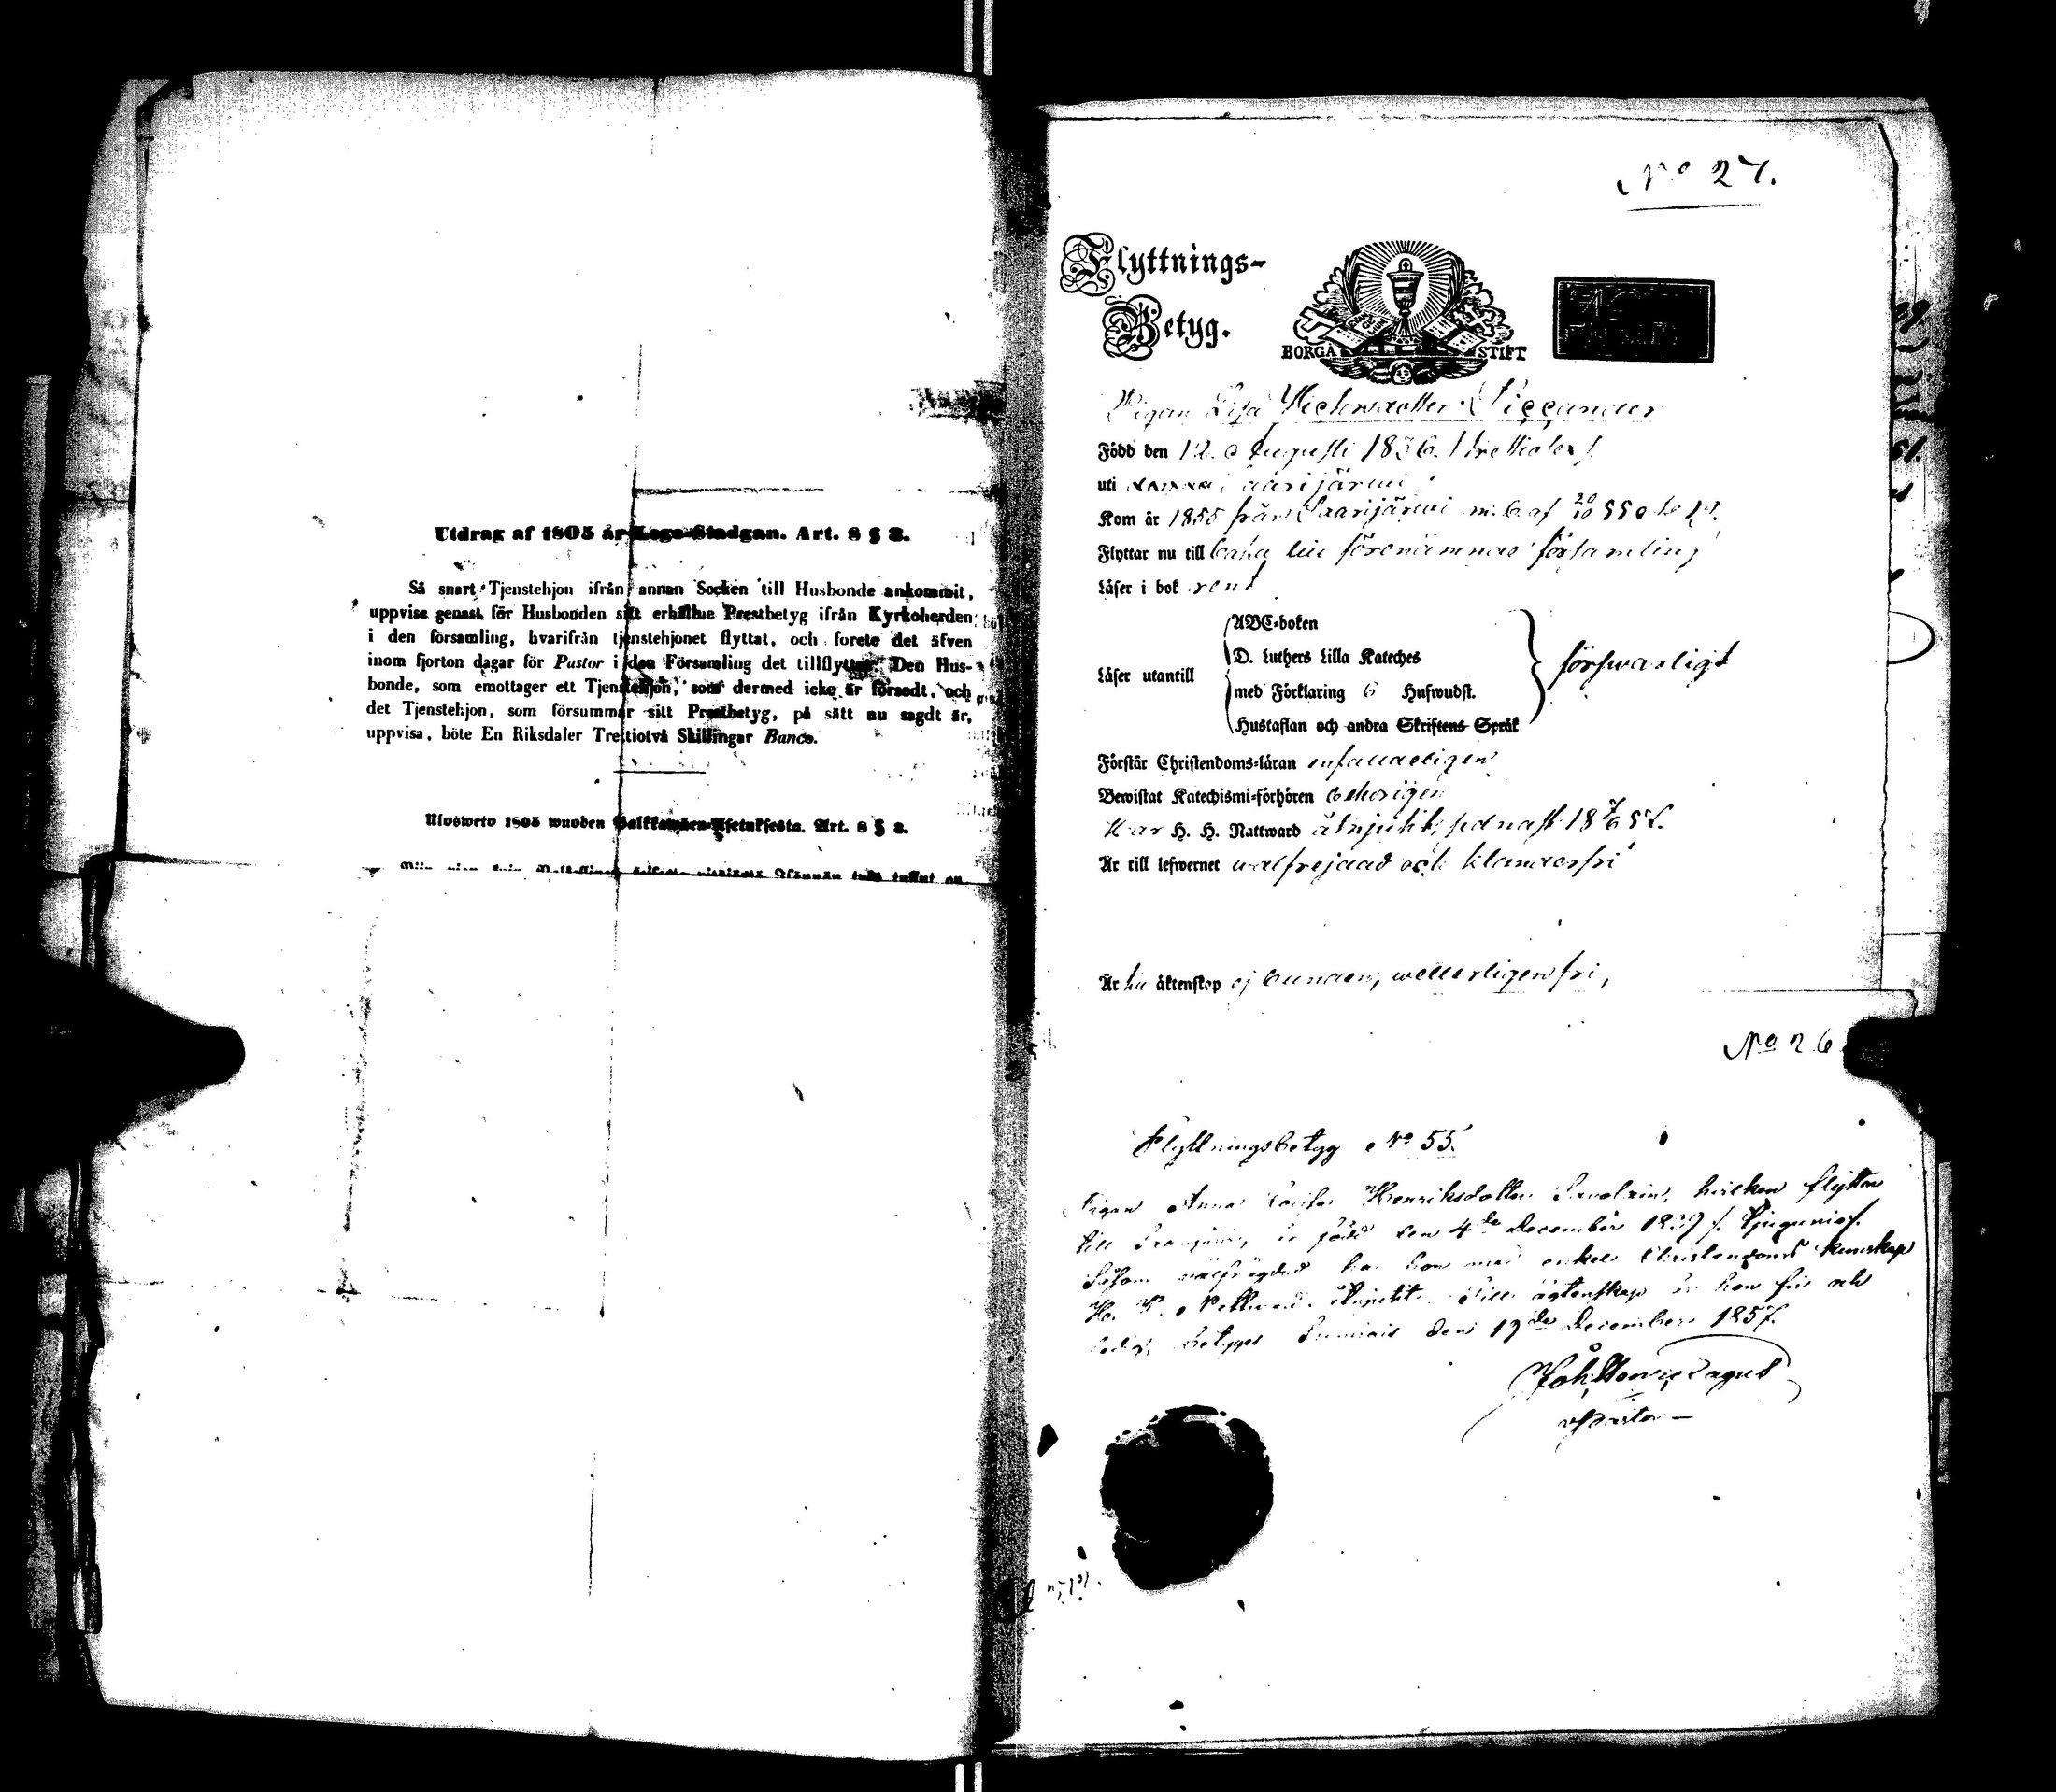 Utdrag af 1805 år Lego-Stadgan. Art. 8 § 3.
Så snart Tjenstehjon ifrån annan Socken till Husbonde ankommit,
uppvise genast för Husbonden sitt erhållne Prestbetyg ifrån Kyrkoherden
i den församling, hvarifrån tjenstehjonet flyttat, och förete det äfven
inom fjorton dagar för Pastor i den Församling det tillflyttar. Den Hus-
bonde, som emottager ett Tjenstehjon, som dermed icke är försedt, och
det Tjenstehjon, som försummar sitt Prestbetyg, på sätt nu sagdt är,
uppvisa, böte En Riksdaler Trettiotvå Skillingar Banco.
Ulosweto 1805 wuoden Palkkawäen-Asetuksesta. Art. 8 § 3.
No 27.
Flyttnings-
Betyg.
BORGÅ STIFT
Pigan Lisa
Född den 12. Augusti 1836.
uti Saarijärwi
Kom år 1855 från Saarijärwi m. b. af 20/10 55
Flyttar nu till förenämnas församling
Läser i bok rent
Läser utantill
ABC-boken
D. Luthers Lilla Kateches
med Förklaring 6 Hufwudst.
Hustaflan och andra Skriftens Språk
förswarligt
Förstår Christendoms-läran enfalldeligen
Bewistat Katechismi-förhören behörigen
Har H. H. Nattward åtnjutit, sednast 18
Är till lefwernet walfrejdad och klanderfri
Är till äktenskap ej bunden, wetterligen fri,
No 26
Flyttningsbetyg No 55.
Pigan Anna Lovisa Henriksdotter hvilken flyttar
till är född den 4de December 1829
Såsom har hon med enkel Christendoms kunskap
H. H. Nattvard åtnjutit. Till ägtenskap är hon fri och
ledig, betyges den 19de December 1857.
Joh. Henric Lagus
Pastor